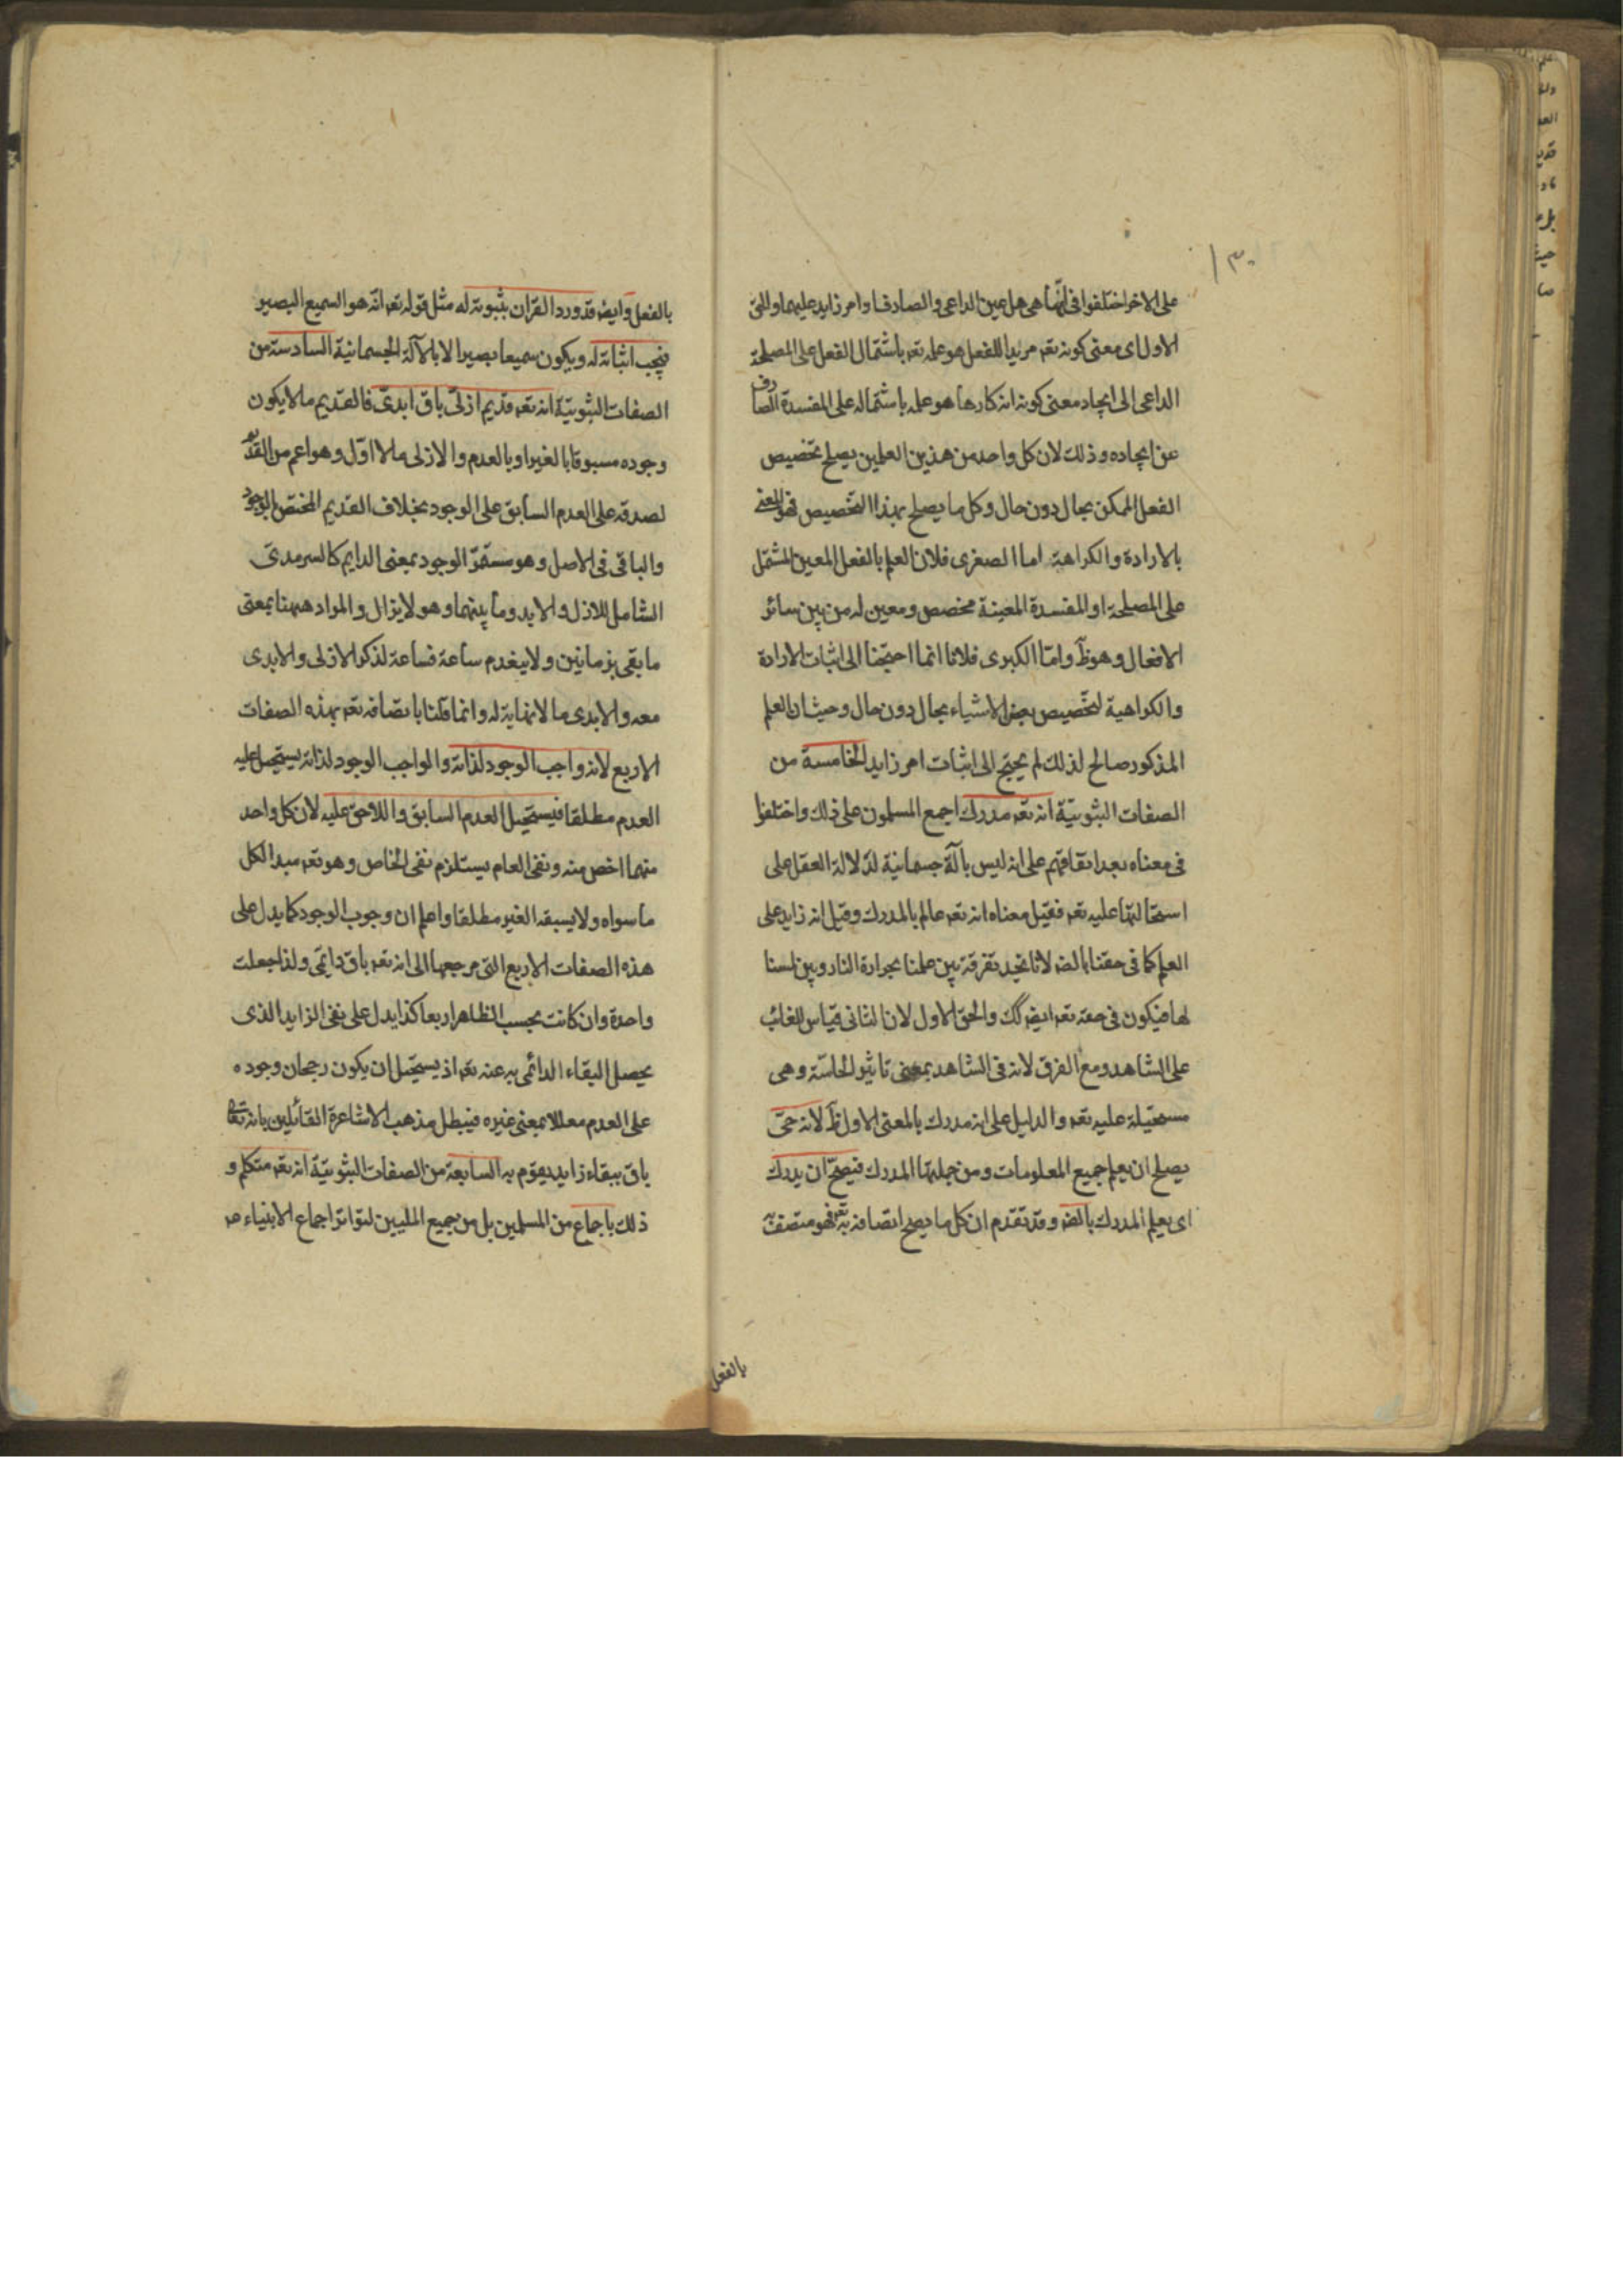 ١٣٠
على الاخر اختلفوا فى انها هى هل عين الداعى والصارف او امر زايد عليهما والحق
الاول اى معنى كونه تعه مريدا للفعل هو علمه تعه باشتمال الفعل على المصلحة
الداعى الى ايجاد معنى كونه انه كارها هو علمه باشتماله على المفسدة الصارف
عن ايجاده وذلك لان كل واحد من هذين العلمين يصلح تخصيص
الفعل الممكن بحال دون حال وكل ما يصلح بهذا التخصيص فهو المعنى
بالارادة والكراهة اما الصغرى فلان العلم بالفعل المعين المشتمل
على المصلحة او المفسدة المعينة مخصص ومعين له من بين سائر
الافعال وهو ظ واما الكبرى فلانا انما احتجنا الى اثبات الارادة
والكراهية لتخصيص بعض الاشياء بحال دون حال وحيث ان العلم
المذكور صالح لذلك لم يحتج الى اثبات امر زايد الخامسة من
الصفات الثبوتية انه تعه مدرك اجمع المسلمون على ذلك واختلفوا
فى معناه بعد اتفاقهم على انه ليس بآلة جسمانية لدلالة العقل على
استحالتها عليه تعه فقيل معناه انه تعه عالم بالمدرك وقيل انه زايد على
العلم كما فى حقنا بالضه لانا نجد تفرقة بين علمنا بحرارة النار وبين لمسنا
لها فيكون فى حقه تعه ايضه كك والحق الاول لان الثانى قياس للغائب
على الشاهد ومع الفرق لانه فى الشاهد بمعنى تاثير الحاسة وهى
مستحيلة عليه تعه والدليل على انه مدرك بالمعنى الاول ظ لانه حى
يصلح ان يعلم جميع المعلومات ومن جملتها المدرك فيصح ان يدرك
اى يعلم المدرك بالضه وقد تقدم ان كل ما يصح اتصافه به تعه فهو متصف به
بالفعل
بالفعل وايضه قد ورد القران بثبوته له مثل قوله تعه انه هو السميع البصير
فيجب اثباته له ويكون سميعا بصيرا لا بالآلة الجسمانية السادسة من
الصفات الثبوتية انه تعه قديم ازلى باق ابدى فالقديم ما لا يكون
وجوده مسبوقا بالغير او بالعدم والازلى ما لا اول وهو اعم من القديم
لصدقه على العدم السابق على الوجود بخلاف القديم المختص بالوجود
والباقى فى الاصل وهو مستمر الوجود بمعنى الدايم كالسرمدى
الشامل للازل والابد وما بينهما وهو لا يزال والمراد ههنا بمعنى
ما بقى بزمانين ولا ينعدم ساعة فساعة لذكر الازلى والابدى
معه والابدى ما لا نهاية له وانما قلنا باتصافه تعه بهذه الصفات
الاربع لانه واجب الوجود لذاته والواجب الوجود لذاته يستحيل عليه
العدم مطلقا فيستحيل العدم السابق واللاحق عليه لان كل واحد
منهما اخص منه ونفى العام يستلزم نفى الخاص وهو تعه مبدا لكل
ما سواه ولا يسبقه الغير مطلقا واعلم ان وجوب الوجود كما يدل على
هذه الصفات الاربع التى مرجعها الى انه تعه باق دائمى ولذا جعلت
واحدة وان كانت بحسب الظاهر اربعا كذا يدل على نفى الزايد الذى
يحصل البقاء الدائمى به عنه تعه اذ يستحيل ان يكون رجحان وجوده
على العدم معللا بمعنى غيره فيبطل مذهب الاشاعرة القائلين بانه تعالى
باق ببقاء زايد يقوم به السابعة من الصفات الثبوتية انه تعه متكلم و
ذلك باجماع من المسلمين بل من جميع المليين لتواتر اجماع الانبياء